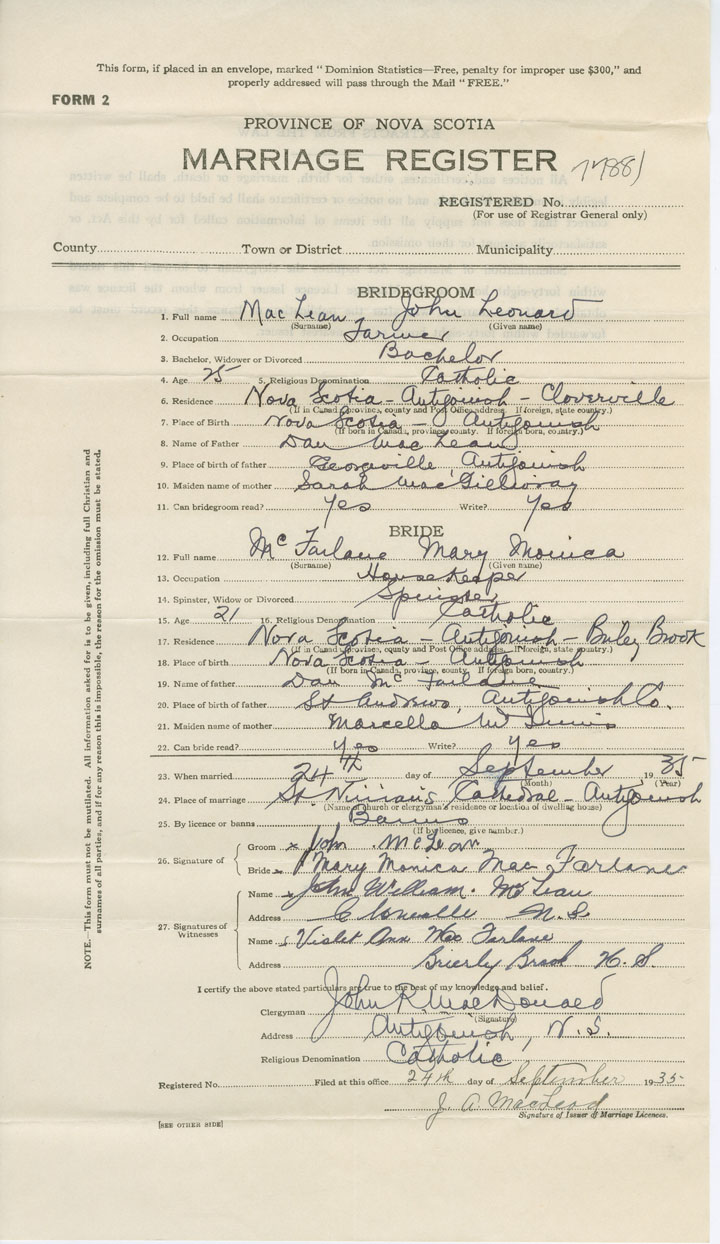 This form, if placed in an envelope, marked "Dominion Statistics—Free, penalty for improper use $300," and
properly addressed will pass through the Mail "FREE."
FORM 2
PROVINCE OF NOVA SCOTIA
MARRIAGE REGISTER
REGISTERED No.
(For use of Registrar General only)
County Town or District Municipality
BRIDEGROOM
1. Full name Mac Lean John Leonard
(Surname) (Given name)
2. Occupation Farmer
3. Bachelor, Widower or Divorced Bachelor
4. Age 25 5. Religious Denomination Catholic
6. Residence Nova Scotia - Antigonish - Cloverville
(If in Canada, province, county and Post Office address. If foreign, state country.)
7. Place of Birth Nova Scotia - Antigonish
(If born in Canada, province, county. If foreign born, country.)
8. Name of Father Dan Mac Lean
9. Place of birth of father Georgeville, Antigonish
10. Maiden name of mother Sarah MacGillivray
11. Can bridegroom read? Yes Write? Yes
BRIDE
12. Full name Mc Farlane Mary Monica
(Surname) (Given name)
13. Occupation Housekeeper
14. Spinster, Widow or Divorced Spinster
15. Age 21 16. Religious Denomination Catholic
17. Residence Nova Scotia - Antigonish - Brook
(If in Canada, province, county and Post Office address. If foreign, state country.)
18. Place of birth Nova Scotia - Antigonish
(If born in Canada, province, county. If foreign born, country.)
19. Name of father Dan Mc Farlane
20. Place of birth of father St Andrews, Antigonish Co.
21. Maiden name of mother Marcella
22. Can bride read? Yes Write? Yes
23. When married 24th day of September 1935
(Month) (Year)
24. Place of marriage St. Ninian's Cathedral - Antigonish
(Name of church or clergyman's residence or location of dwelling house)
25. By licence or banns Banns
(If by licence, give number.)
26. Signature of
Groom x John McLean
Bride x Mary Monica Mac Farlane
27. Signatures of Witnesses
Name x John William McLean
Address N.S.
Name x Violet Ann Mac Farlane
Address Brierly Brook N.S.
I certify the above stated particulars are true to the best of my knowledge and belief.
Clergyman John R. MacDonald
(Signature)
Address Antigonish, N.S.
Religious Denomination Catholic
Registered No. Filed at this office 24th day of September 1935
J. A. MacLeod
Signature of Issuer of Marriage Licences.
[SEE OTHER SIDE]
NOTE.—This form must not be mutilated. All information asked for is to be given, including full Christian and
surnames of all parties, and if for any reason this is impossible, the reason for the omission must be stated.